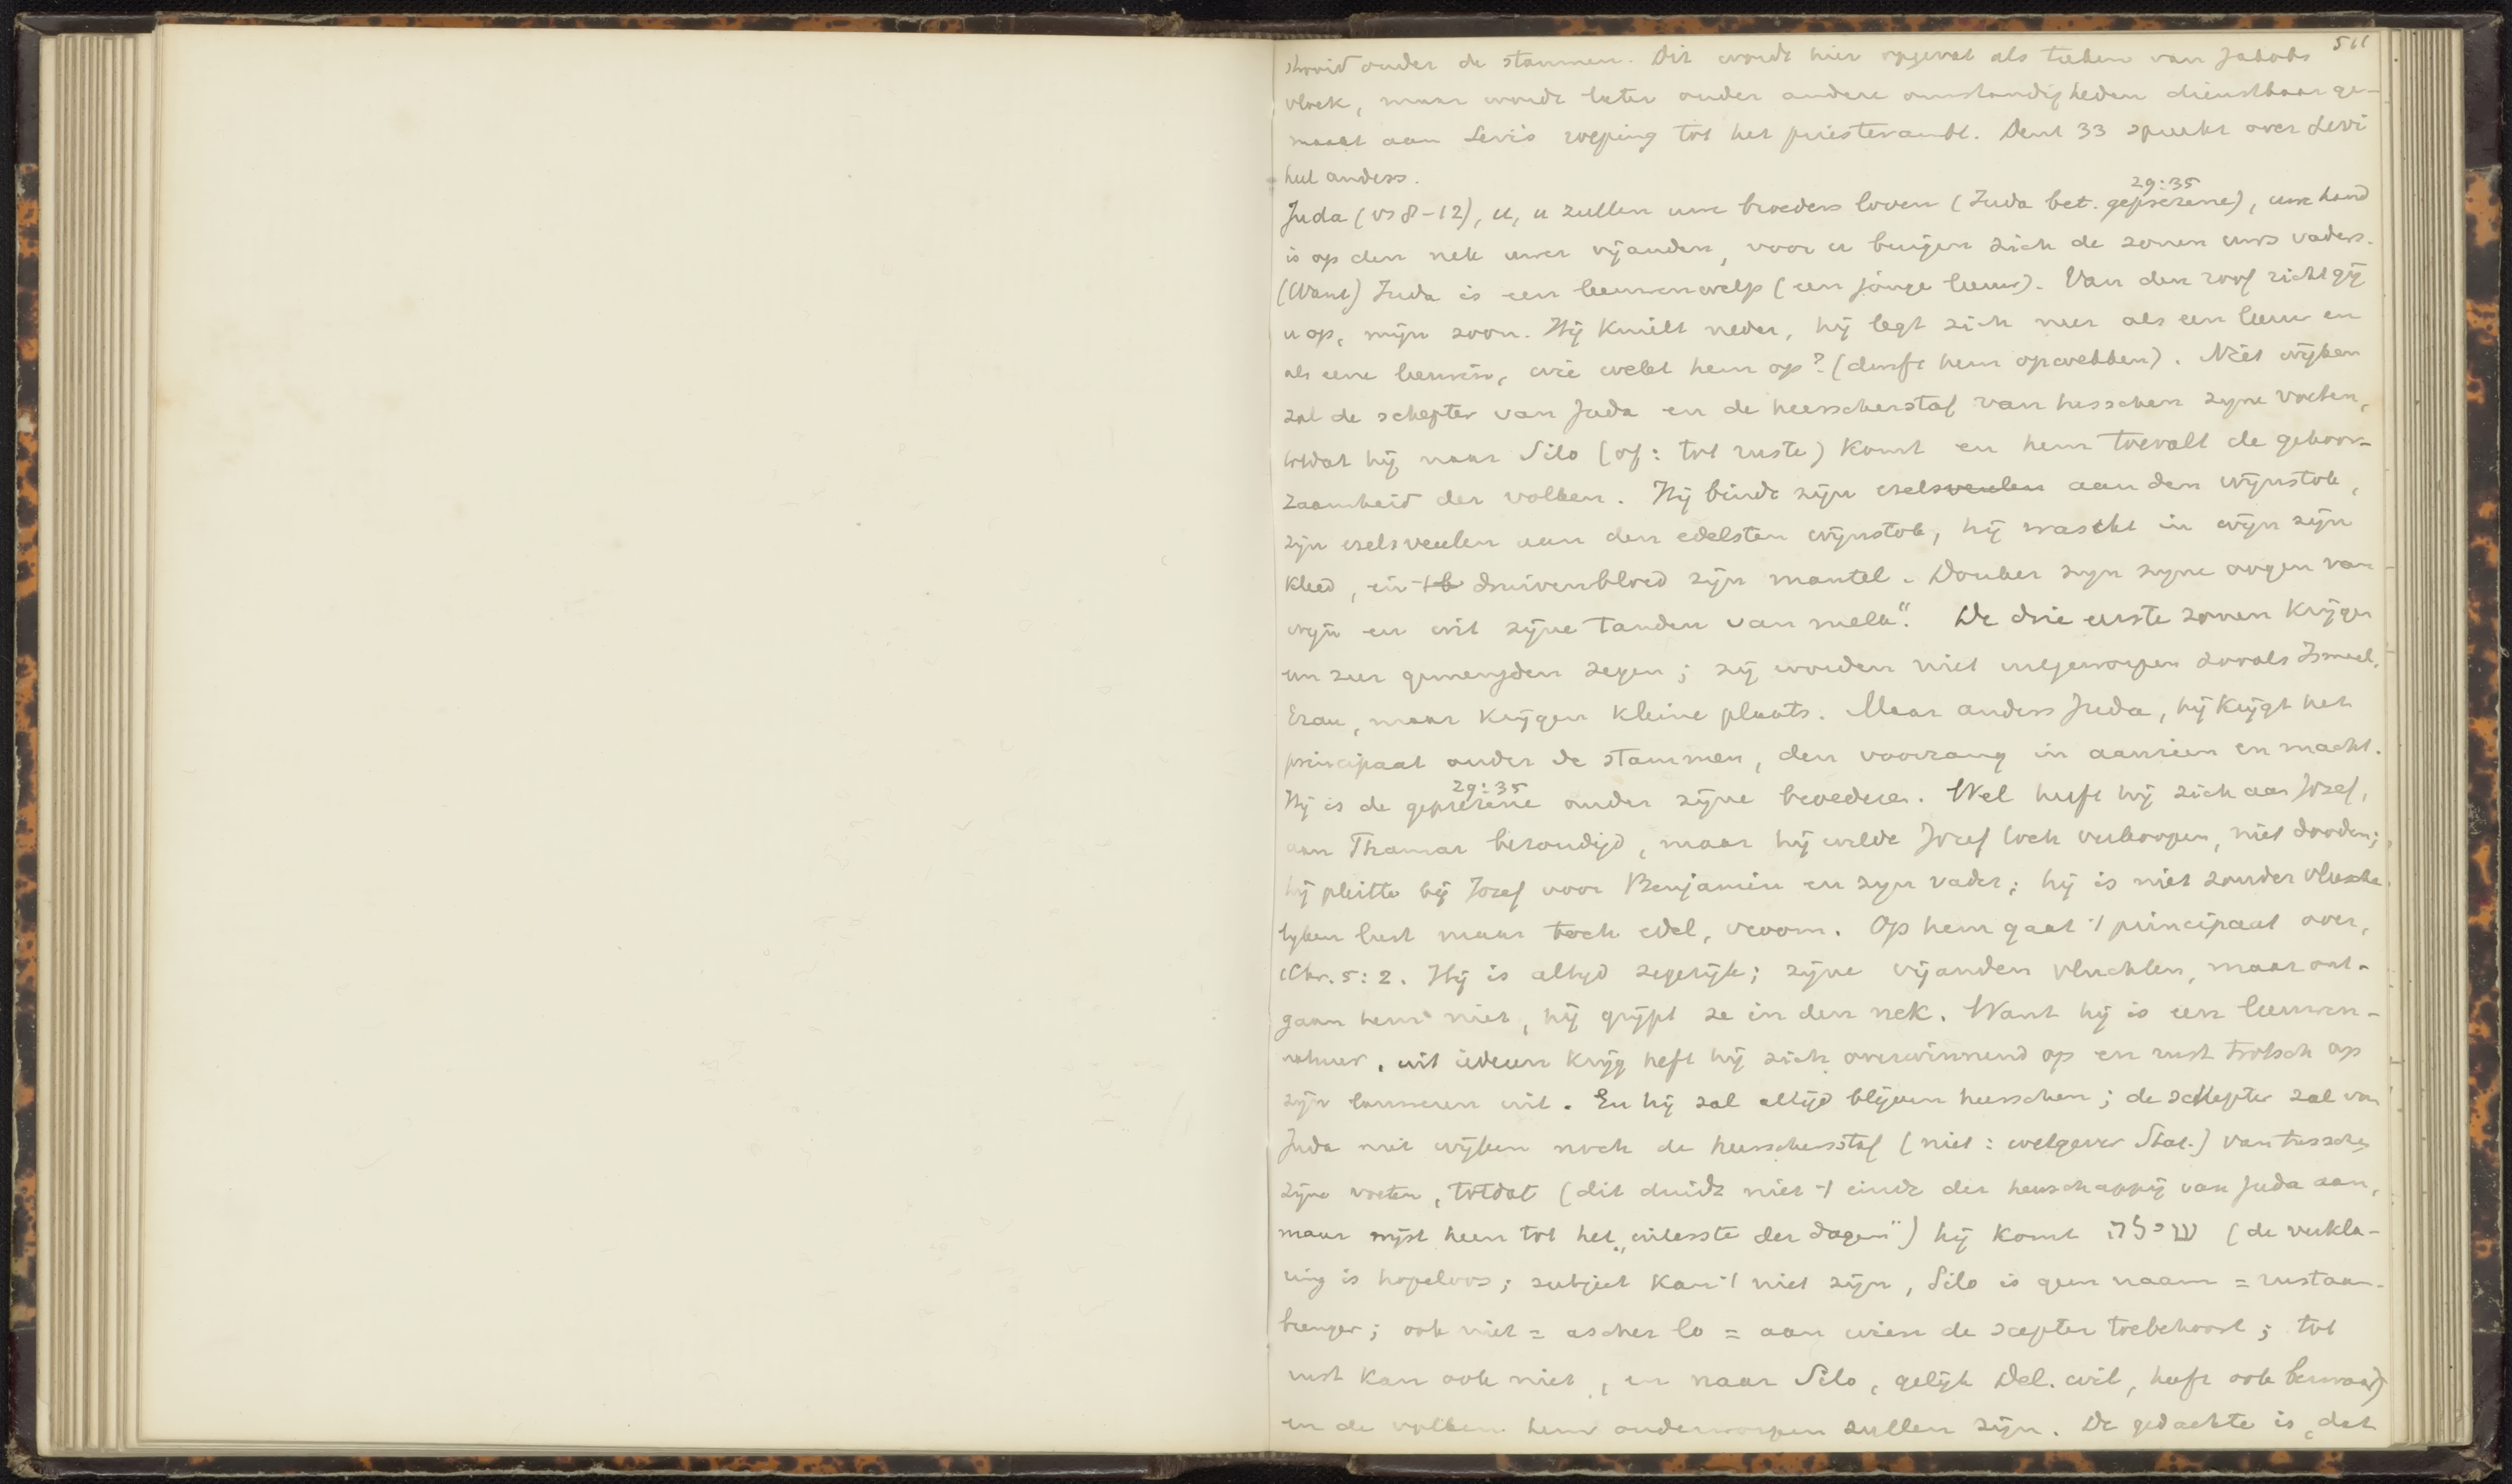 511
strooid onder de stammen. Dit wordt hier opgevat als teeken van Jakobs
vloek, maar wordt later onder andere omstandigheden dienstbaar ge-
maakt aan Levi's roeping tot het priesterambt. Deut 33 spreekt over Levi
heel anders.
29:35
Juda (vs 8-12), u, u zullen uwe broeders loven (Juda bet. geprezene), uwe hand
is op den nek uwer vijanden, voor u buigen zich de zonen uws vaders.
(Want) Juda is een leeuwenwelp (een jonge leeuw). Van den roof richt gij
u op, mijn zoon. Hij knielt neder, hij legt zich neer als een leeuw en
als eene leeuwin, wie wekt hem op? (durft hem opwekken). Niet wijken
zal de schepter van Juda en de heerscherstaf van tusschen zijne voeten,
totdat hij naar Silo (of: tot ruste) komt en hem toevalt de gehoor-
zaamheid der volken. Hij bindt zijn ezelsveulen aan den wijnstok,
zijn ezelsveulen aan den edelsten wijnstok, hij wascht in wijn zijn
kleed, in 't b druivenbloed zijn mantel. Donker zijn zijne oogen van
wijn en wit zijne tanden van melk". De drie eerste zonen krijgen
een zeer gemengden zegen; zij worden niet uitgeworpen zooals Ismael,
Ezau, maar krijgen kleine plaats. Maar anders Juda, hij krijgt het
principaat onder de stammen, den voorrang in aanzien en macht.
29:35
Hij is de geprezene onder zijne broederen. Wel heeft hij zich aan Jozef,
aan Thamar bezondigd, maar hij wilde Jozef toch verkoopen, niet dooden;
hij pleitte bij Jozef voor Benjamin en zijn vader; hij is niet zonder vleesche-
lijken lust maar toch edel, vroom. Op hem gaat 't principaat over,
1 Chr. 5:2. Hij is altijd zegerijk; zijne vijanden vluchten, maar ont-
gaan hem niet, hij grijpt ze in den nek. Want hij is een leeuwen-
natuur, uit iederen krijg heft hij zich overwinnend op en rust trotsch op
zijn lauweren uit. En hij zal altijd blijven heerschen; de schepter zal van
Juda niet wijken noch de heerschersstaf (niet: wetgever Stat.) van tusschen
zijne voeten, totdat (dit duidt niet 't einde der heerschappij van Juda aan,
maar wijst heen tot het "uiterste der dagen") hij komt שילה (de verkla-
ring is hopeloos; subject kan 't niet zijn, Silo is geen naam = rustaan-
brenger; ook niet = ascher lo = aan wien de scepter toebehoort; tot
rust kan ook niet, en naar Silo, gelijk Del. wil, heeft ook bezwaar)
en de volken hem onderworpen zullen zijn. De gedachte is, dat